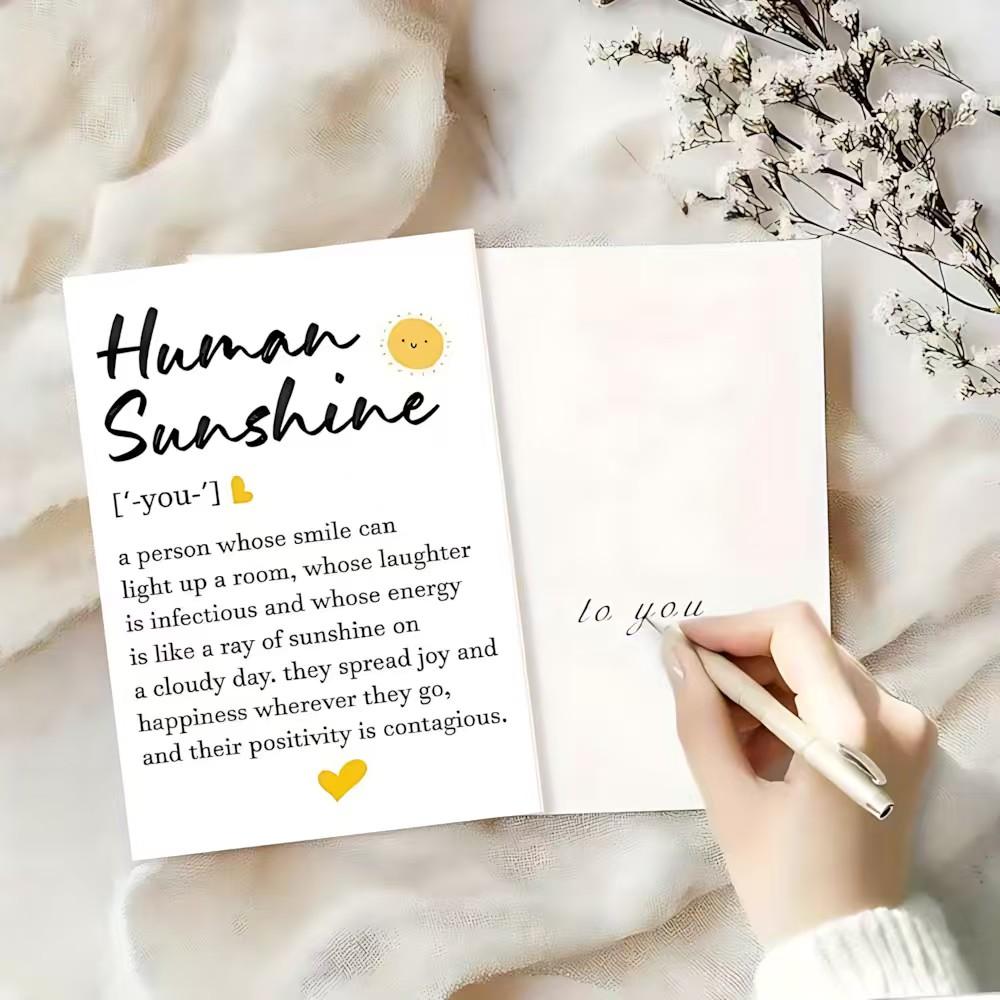 Human
Sunshine
['-you-']
a person whose smile can
light up a room, whose laughter
is infectious and whose energy
is like a ray of sunshine on
a cloudy day. they spread joy and
happiness wherever they go,
and their positivity is contagious.
to you